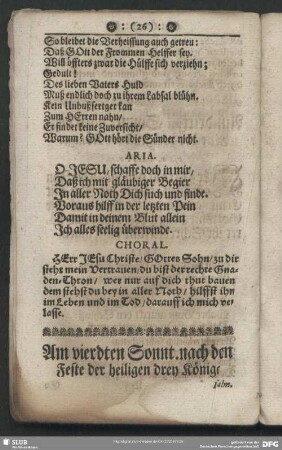 : (26) :
So bleibet die Verheissung auch getreu:
Daß GOtt der Frommen Helffer sey.
Will öffters zwar die Hülffe sich verziehn;
Gedult!
Des lieben Vaters Huld
Muß endlich doch zu ihrem Labsal blühn.
Kein Unbußfertger kan
Zum HErren nahn/
Er findet keine Zuversicht/
Warum? GOtt hört die Sünder nicht.
ARIA.
O JESU, schaffe doch in mir,
Daß ich mit gläubiger Begier
Jn aller Noth Dich such und finde.
Voraus hilff in der letzten Pein
Damit in deinem Blut allein
Jch alles seelig überwinde.
CHORAL.
HErr JEsu Christe/ GOttes Sohn/ zu dir
steht mein Vertrauen/ du bist der rechte Gna-
den-Thron/ wer nur auf dich thut bauen
dem stehst du bey in aller Noth/ hilffst ihn
im Leben und im Tod/ darauff ich mich ve-
lasse.
Am vierdten Sonnt. nach den
Feste der heiligen drey Könige
SLUB
DFG